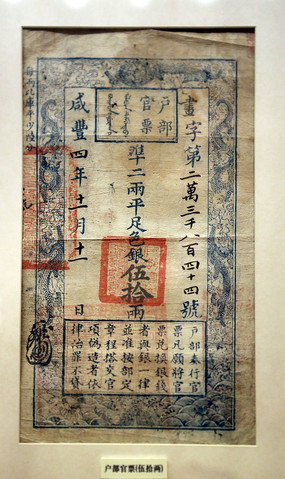 户部官票
畫字第二萬三千八百四十四號
準二兩平足色銀伍拾兩
咸豐四年十一月十一日
户部奏行官
票凡願將官
票兌換銀錢
者與銀一律
並准按部定
章程搭交官
項偽造者依
律治罪不貸
户部官票(伍拾两)